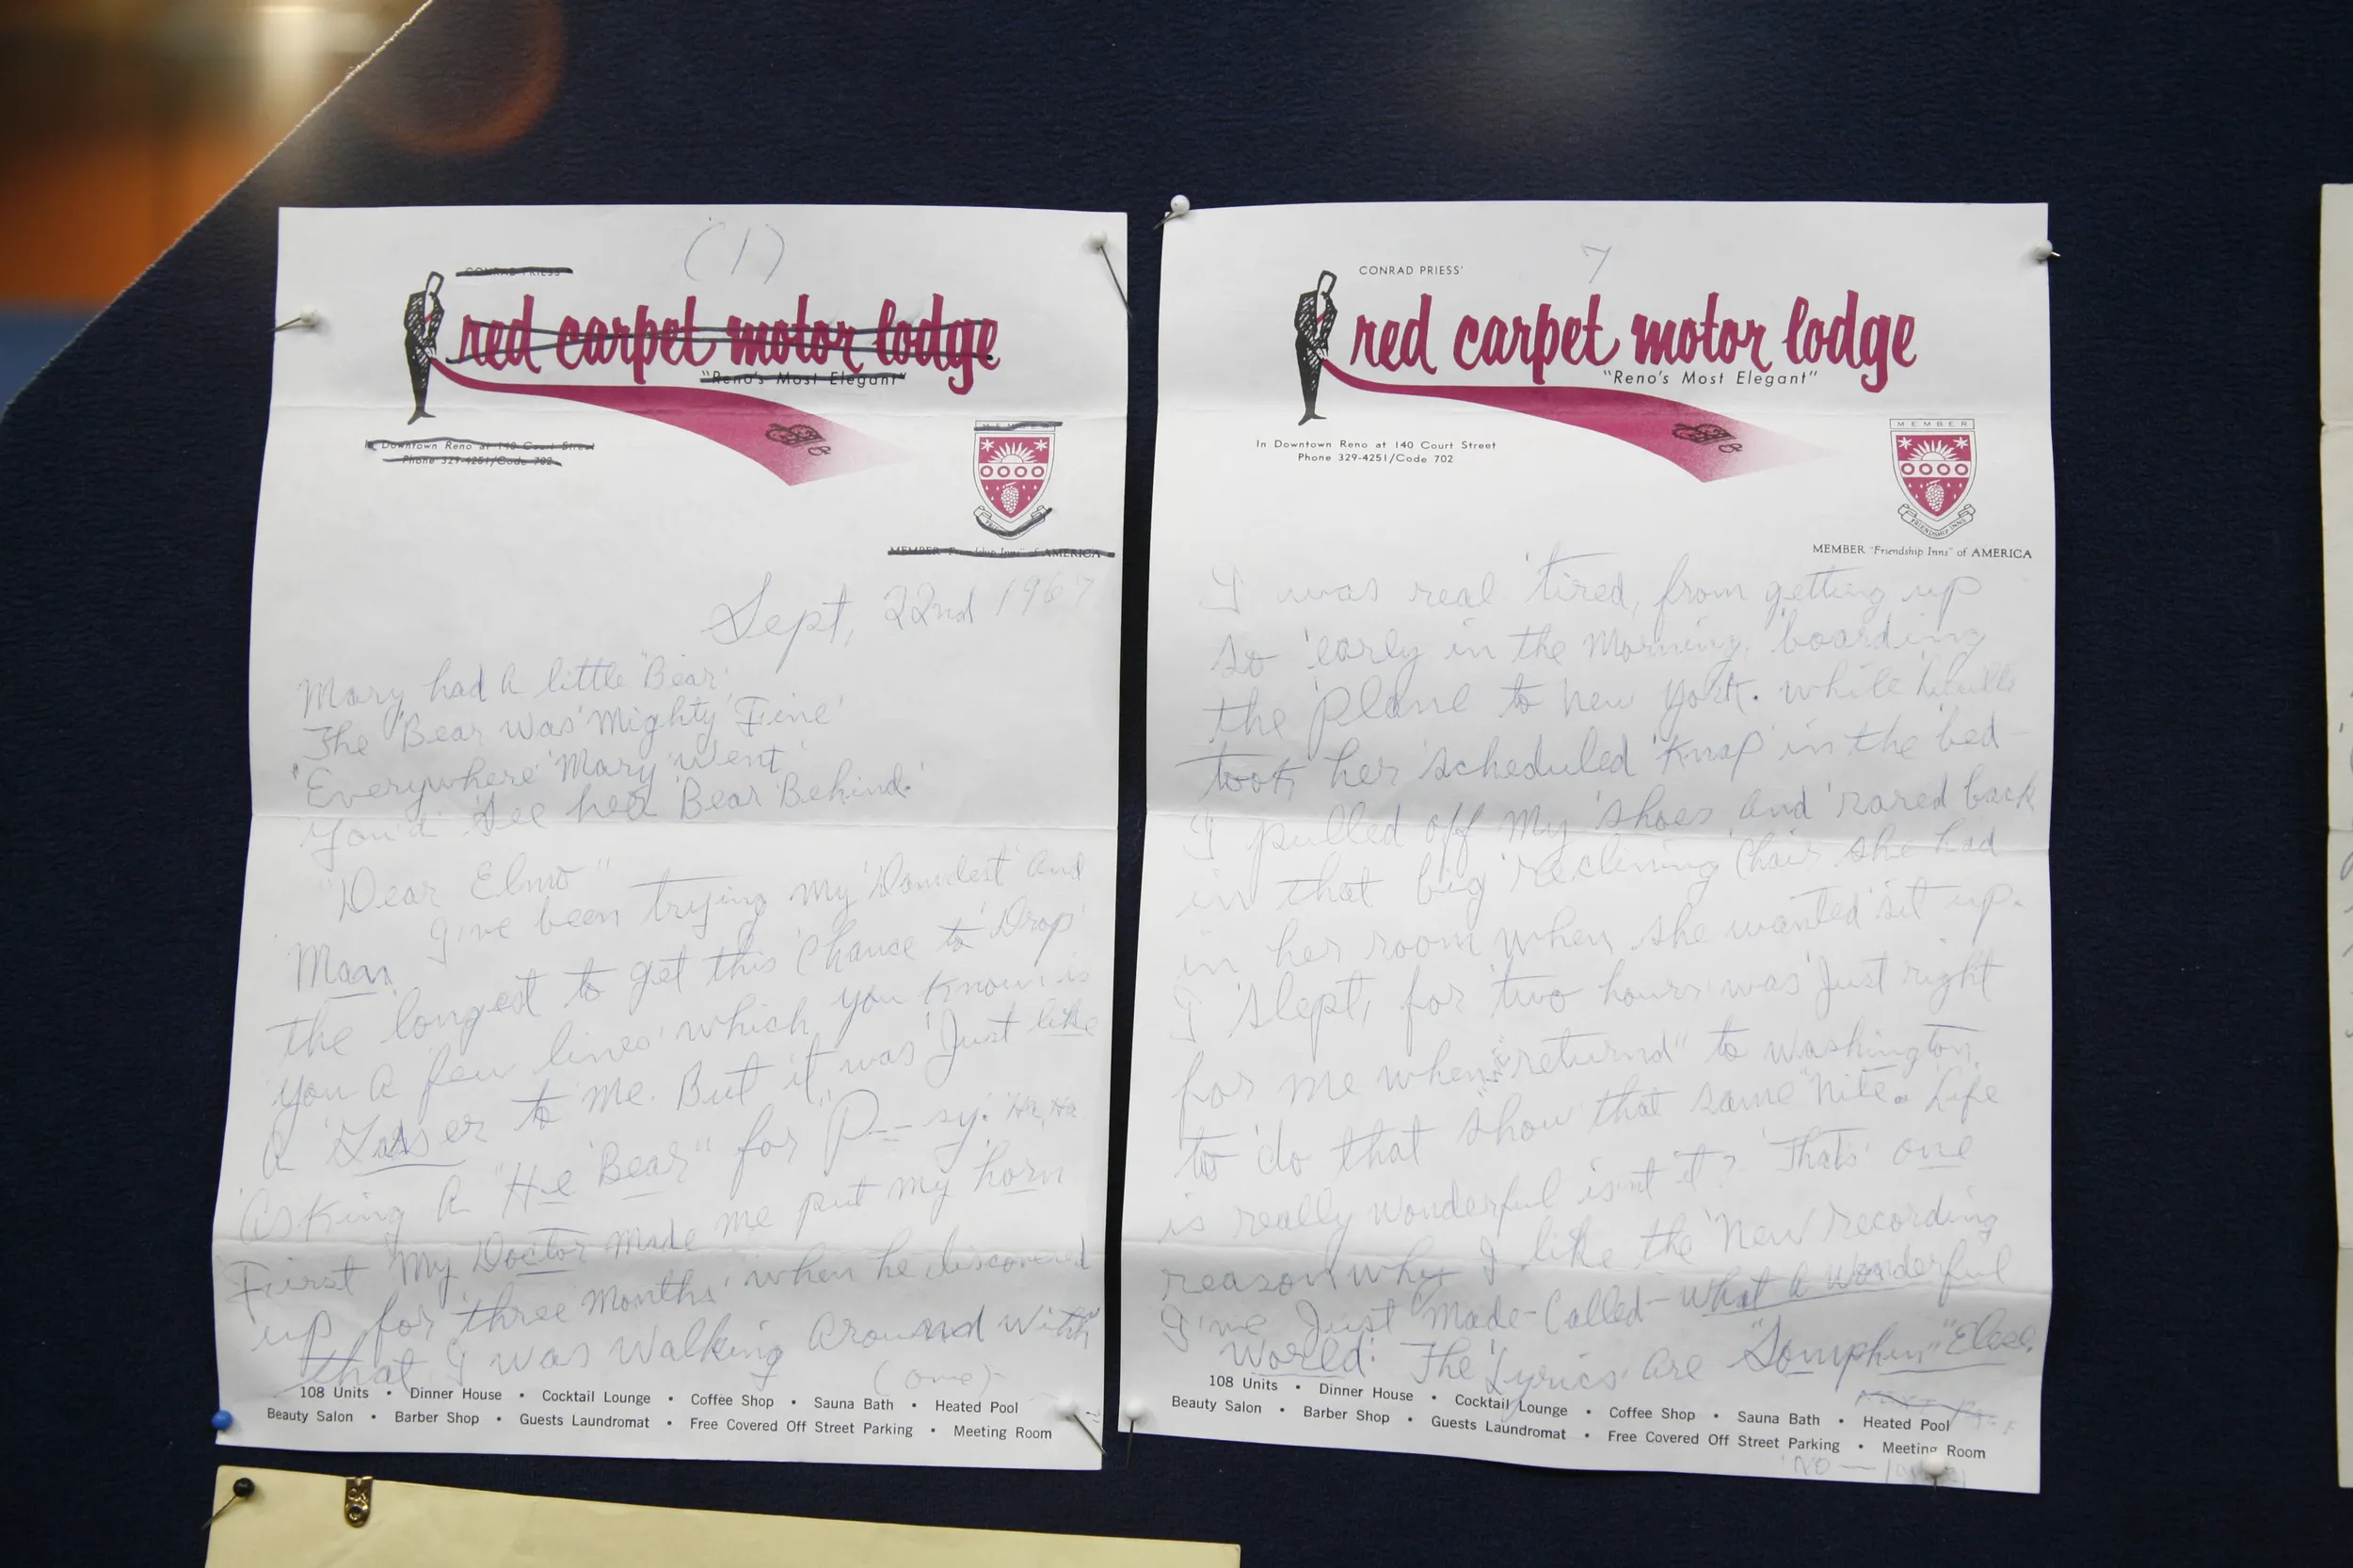 (1)
CONRAD PRIESS'
red carpet motor lodge
"Reno's Most Elegant"
In Downtown Reno at 140 Court Street
Phone 329-4251/Code 702
MEMBER
MEMBER "Friendship Inns" of AMERICA
Sept, 22nd 1967
Mary had A little "Bear'
The 'Bear was 'Mighty 'Fine'
'Everywhere 'Mary 'went'
'You'd' See her 'Bear 'Behind.'
"Dear Elmo"
I've been trying my 'Damdest' and
Man
the longest to get this 'Chance to 'Drop'
you A few lines' which you Know is
A 'Gasser to me. But it was 'Just like
Asking A "He Bear" for "P---sy.' 'Ha, Ha
First 'My Doctor made me put my horn
up for 'three Months' when he discovered
that I was Walking Around with
(one)
108 Units • Dinner House • Cocktail Lounge • Coffee Shop • Sauna Bath • Heated Pool
Beauty Salon • Barber Shop • Guests Laundromat • Free Covered Off Street Parking • Meeting Room
7
CONRAD PRIESS'
red carpet motor lodge
"Reno's Most Elegant"
In Downtown Reno at 140 Court Street
Phone 329-4251/Code 702
MEMBER
FRIENDSHIP INNS
MEMBER "Friendship Inns" of AMERICA
I was real 'tired, from getting up
so 'early in the Morning, 'boarding
the 'plane to New York. while Lucille
took her 'scheduled 'Knap' in the bed-
I pulled off My 'Shoes And 'rared back
in that big 'reclining Chair she had
in her room when she wanted 'sit up.
I 'slept, for 'two hours was 'Just right
for me when "returnd" to Washington,
to 'do that 'show that same "Nite. 'Life
is really wonderful isn't it? 'Thats' one
reason why I like the 'New' recording
I've Just Made-Called-What A Wonderful
World.' The 'Lyrics' are "Somphin" "Else.
108 Units • Dinner House • Cocktail Lounge • Coffee Shop • Sauna Bath • Heated Pool
Beauty Salon • Barber Shop • Guests Laundromat • Free Covered Off Street Parking • Meeting Room